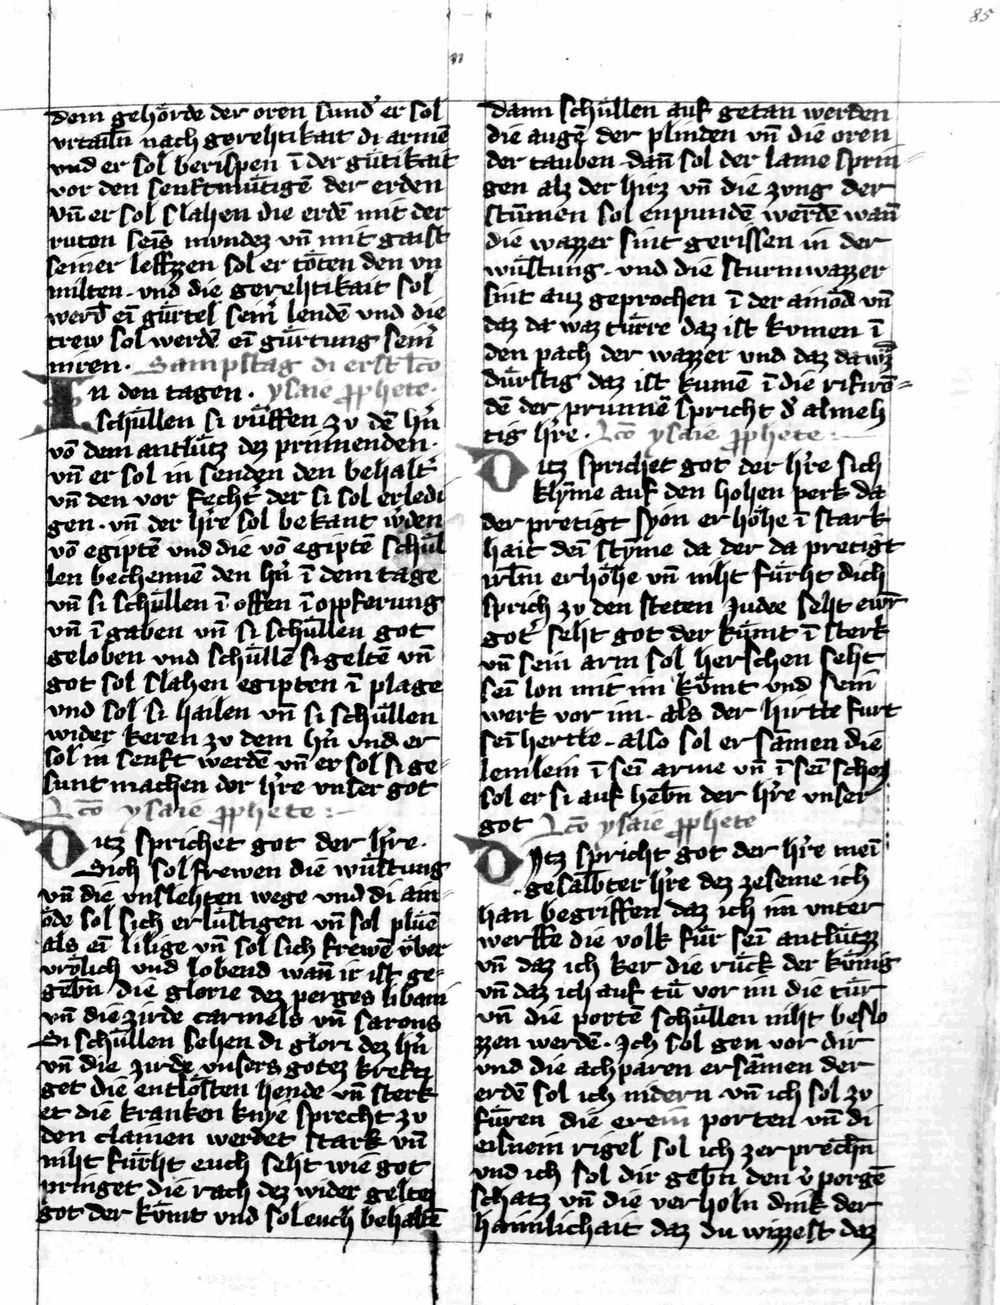 85
dem gehörde der oren sund' er sol
vrtailn̄ nach gerehtikait di armē
vnd er sol berispen ī der gütikait
vor den senftmütigē der erden
vn̄ er sol slahen die erdē mit der
ruten seīs mundez vn̄ mit gaist
seiner leffzen sol er töten den vn
milten · vnd die gerehtikait sol
werd̄ eī gürtel sein' lendē vnd die
trew sol werdē eī gürtung sein'
niren · Sampstag di erst lc̄o
In den tagen · ysaie ꝓphete ·
schüllen si rüffen zv dē hn̄
vō dem antlütz dez prinnenden ·
vn̄ er sol in senden den behalt'
vn̄ den vor fecht' der si sol erledi
gen · vn̄ der h're sol bekant w'den
vō egiptē vnd die vō egiptē schül
len bechennē den hn̄ ī dem tage
vn̄ si schüllen ī offen ī opferung
vn̄ ī gaben vn̄ si schüllen got
geloben vnd schüllē si geltē vn̄
got sol slahen egipten ī plage
vnd sol si hailen vn̄ si schüllen
wider keren zv dem hn̄ vnd er
sol in senft werdē vn̄ er sol si ge-
sunt machen der h're vnser got
Lc̄o ysaie ꝓphete :
Ditz sprichet got der h're ·
Sich sol frewen die wüstung
vn̄ die vnslehten wege vnd di ain-
öde sol sich erlüstigen vn̄ sol plüē
als eī lilige vn̄ sol sich frewē vber
vrölich vnd lobend wan̄ ir ist ge-
gebn̄ die glorie dez perges libani
vn̄ die zirde carmels vn̄ sarons
Si schüllen sehen di glori dez hn̄
vn̄ die zirde vnsers gotez krefti
get die entlösten hende vn̄ sterk
et die kranken knye sprecht zv
den clainen werdet stark vn̄
niht fürht euch seht wie got
pringet die rach dez wider geltez
got der kümt vnd sol euch behaltē
dann schüllen auf getan werden
die augē der plinden vn̄ die oren
der tauben · dan̄ sol der lame sprin-
gen alz der hirz vn̄ die zvng der
stümen sol enpundē werdē wan̄
die wazzer sint gerissen in der
wüstung · vnd die sturmwazzer
sint auz geprochen ī der ainöd vn̄
daz da waz türre daz ist kvmen ī
den pach der wazzer vnd daz da wz
dürstig daz ist kumē ī die rifirē-
dē der prunnē spricht d' almeh
tig h're · Lc̄o ysaie ꝓphete :
Ditz sprichet got der h're sich
klȳme auf den hohen perk da
der pretigt syon er höhe ī stark
hait deī stȳme da der da pretigt
irl̄m erhöhe vn̄ niht fürht dich
sprich zv den steten Judee seht ewr
got' seht got der kümt ī sterk
vn̄ sein arm sol herschen seht
seī lon mit im kümt vnd sein
werk vor im · als der hirtte furt
seī hertte · also sol er sāmen die
lemlein ī seī arme vn̄ ī seī schoz
sol er si auf hebn̄ der h're vnser
got Lc̄o ysaie ꝓphete
Dytz spricht got der h're meī
gesalbter h're dez zeseme ich
han begriffen daz ich im vnter
werffe die volk für seī antlütz
vn̄ daz ich ker die rück der künig
vn̄ daz ich auf tü vor im die tür
vn̄ die portē schüllen niht beslo
zzen werdē · Ich sol gen vor dir
vnd die achparen ersāmen der
erdē sol ich nidern vn̄ ich sol zv
füren die erein porten vn̄ di
eisnein rigel sol ich zerprechn̄
vnd ich sol dir gebn̄ den v'porgē
schatz vn̄ die verholn dink der
haimlichait daz du wizzest daz